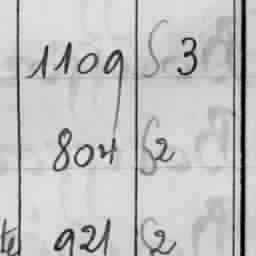 1109 S 3
804 S2
te 921 S2